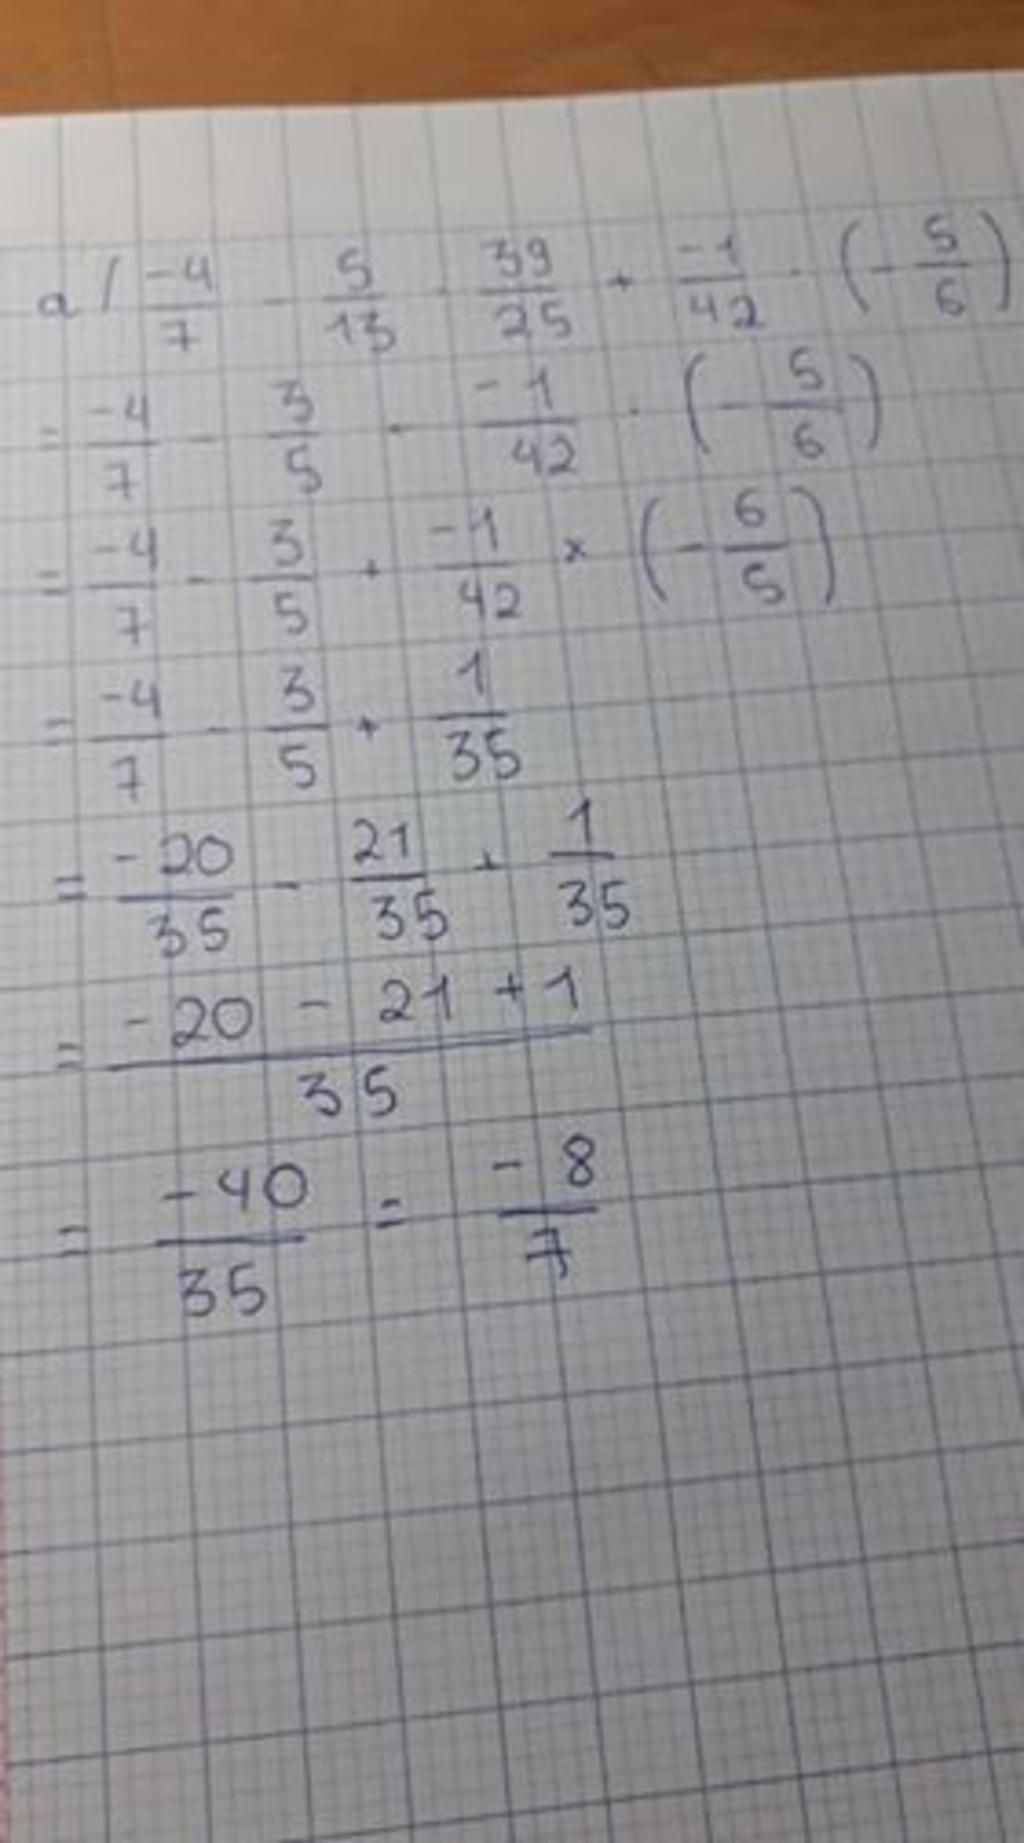 a / -4/7 - 5/13 · 39/25 + -1/42 · (- 5/6)
= -4/7 - 3/5 - -1/42 · (- 5/6)
= -4/7 - 3/5 + -1/42 × (- 6/5)
= -4/7 - 3/5 + 1/35
= -20/35 - 21/35 + 1/35
= -20 - 21 + 1 / 35
= -40/35 = -8/7